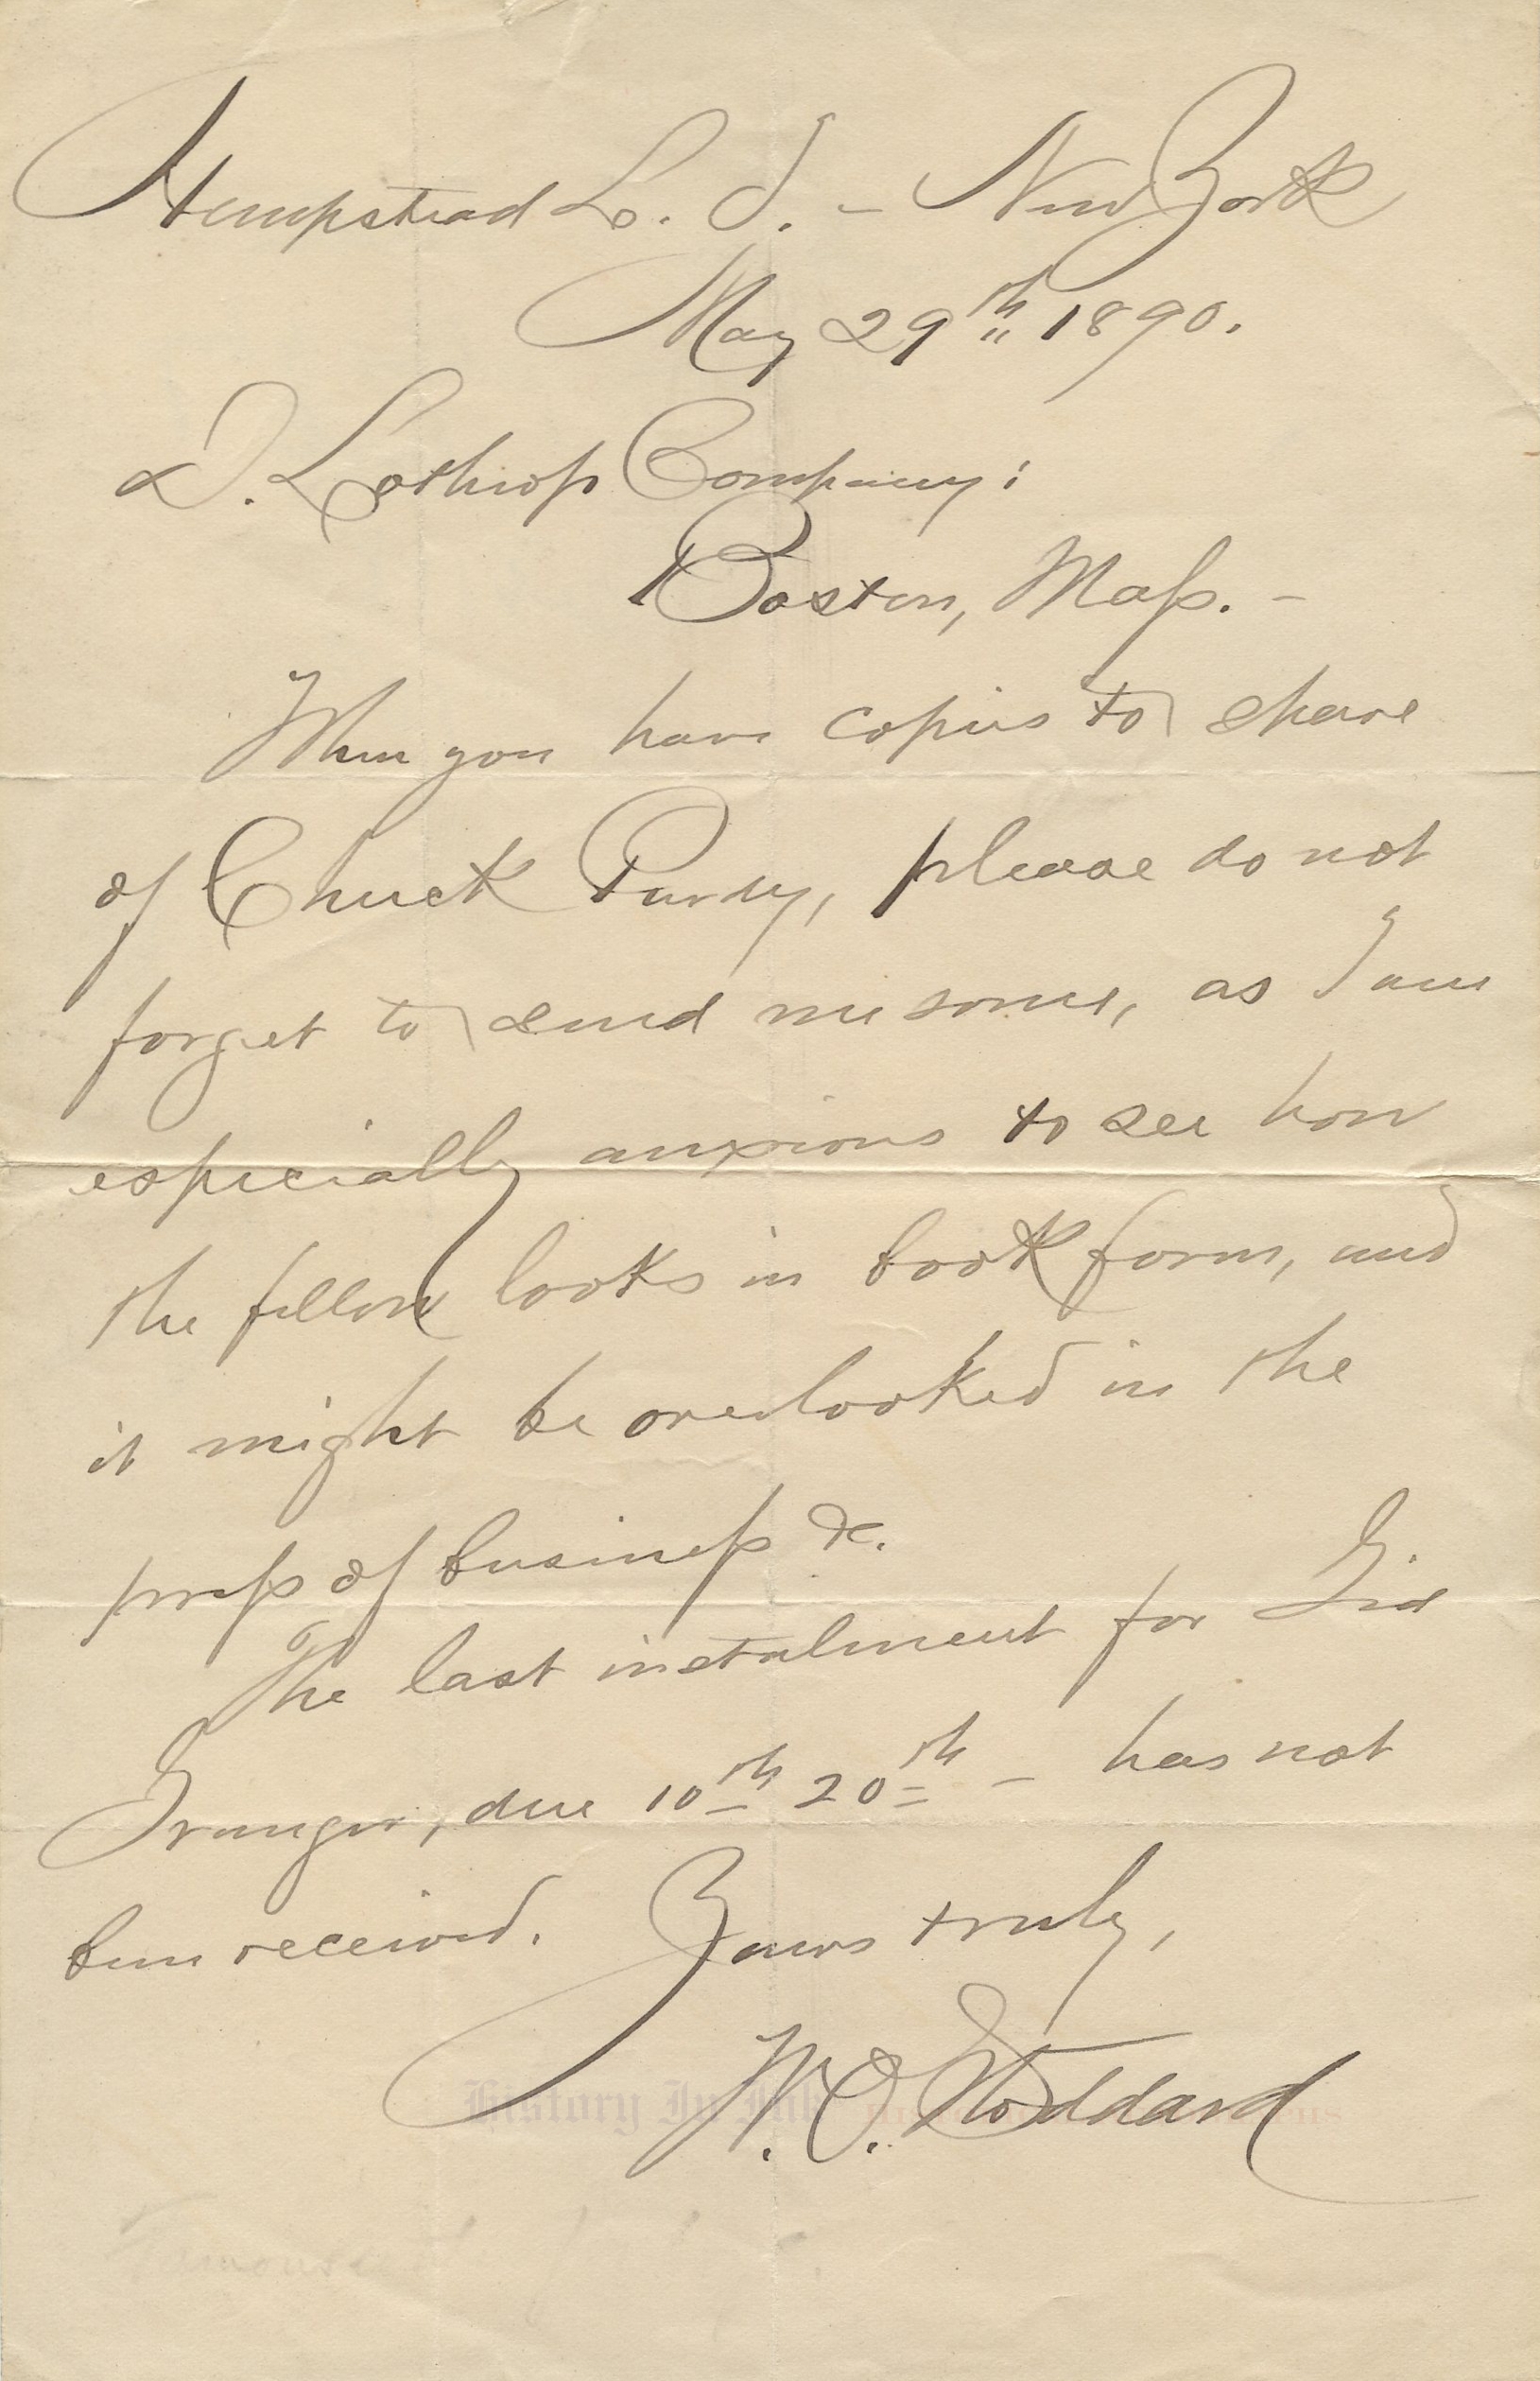 Hempstead L. I. – New York
May 29th 1890.
D. Lothrop Company:
Boston, Mass. –
When you have copies to spare
of Chuck Purdy, please do not
forget to send me some, as I am
especially anxious to see how
the fellow looks in book form, and
it might be overlooked in the
press of business &c.
The last instalment for Gid
Granger, due 10th 20th – has not
been received. Yours truly,
W. O. Stoddard
History In Ink